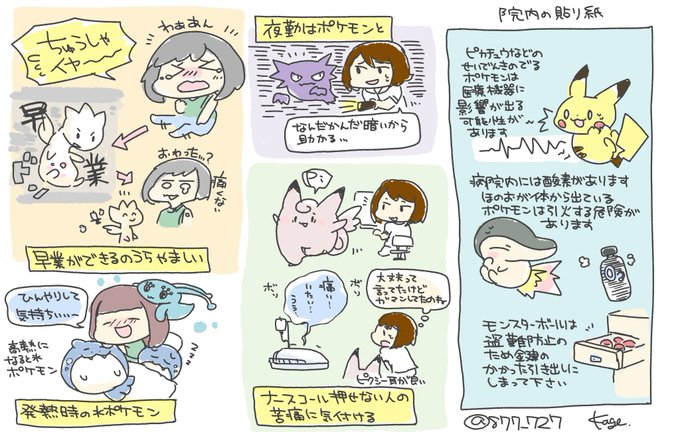 ちゅうしゃ
イヤ〜〜〜
わぁあん
早業
ドン
おわった…?
痛くない
早業ができるのうらやましい
ひんやりして
気持ちいい…
高熱に
なると氷
ポケモン
発熱時の氷ポケモン
夜勤はポケモンと
なんだかんだ暗いから
助かる…
ピ。
大丈夫って
言ってたけど
ガマンしてたのね
痛い…
いたい…
うぅ…
ボソ
ボソ
ピクシー耳が良い
ナースコール押せない人の
苦痛に気付ける
院内の貼り紙
ピカチュウなどの
せいでんきのでる
ポケモンは
医療機器に
影響が出る
可能性が〜
あります
病院内には酸素があります
ほのおが体から出ている
ポケモンは引火する危険が
あります
O₂
モンスターボールは
盗難防止の
ため金鍵の
かかった引き出しに
しまって下さい
@877_727
Kage.